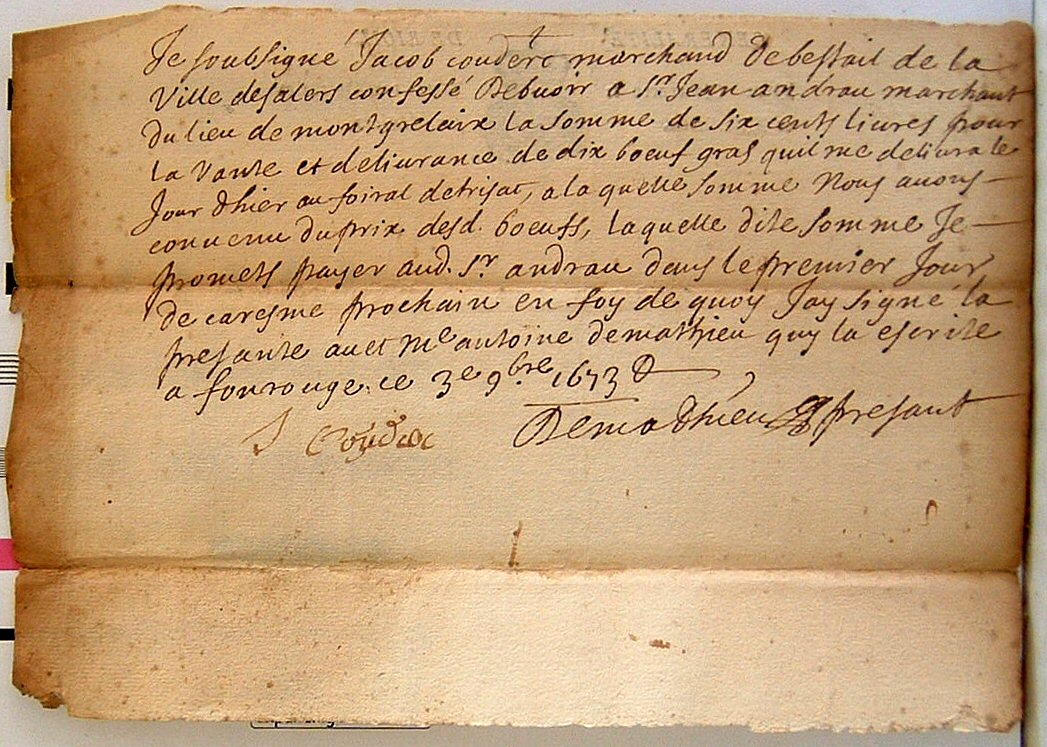 Je soubsigné Jacob couderc marchand de bestail de la
Ville desalers confessé Debuoir a Sr. Jean andrau marchant
du lieu de montgreleix la somme de six cents livres pour
la Vante et deliurance de dix boeuf gras quil me deliura le
Jour dhier au foiral detrisac, a la quelle somme Nous auons
conuenu du prix desd. boeufs, laquelle dite somme Je
promets payer aud. Sr. andrau dans le premier Jour
de caresme prochain en foy de quoy Jay signé la
presante auec Me antoine demathieu quy la escrite
a fonrouge ce 3e 9bre 1673
J Couderc Demadhieu presant